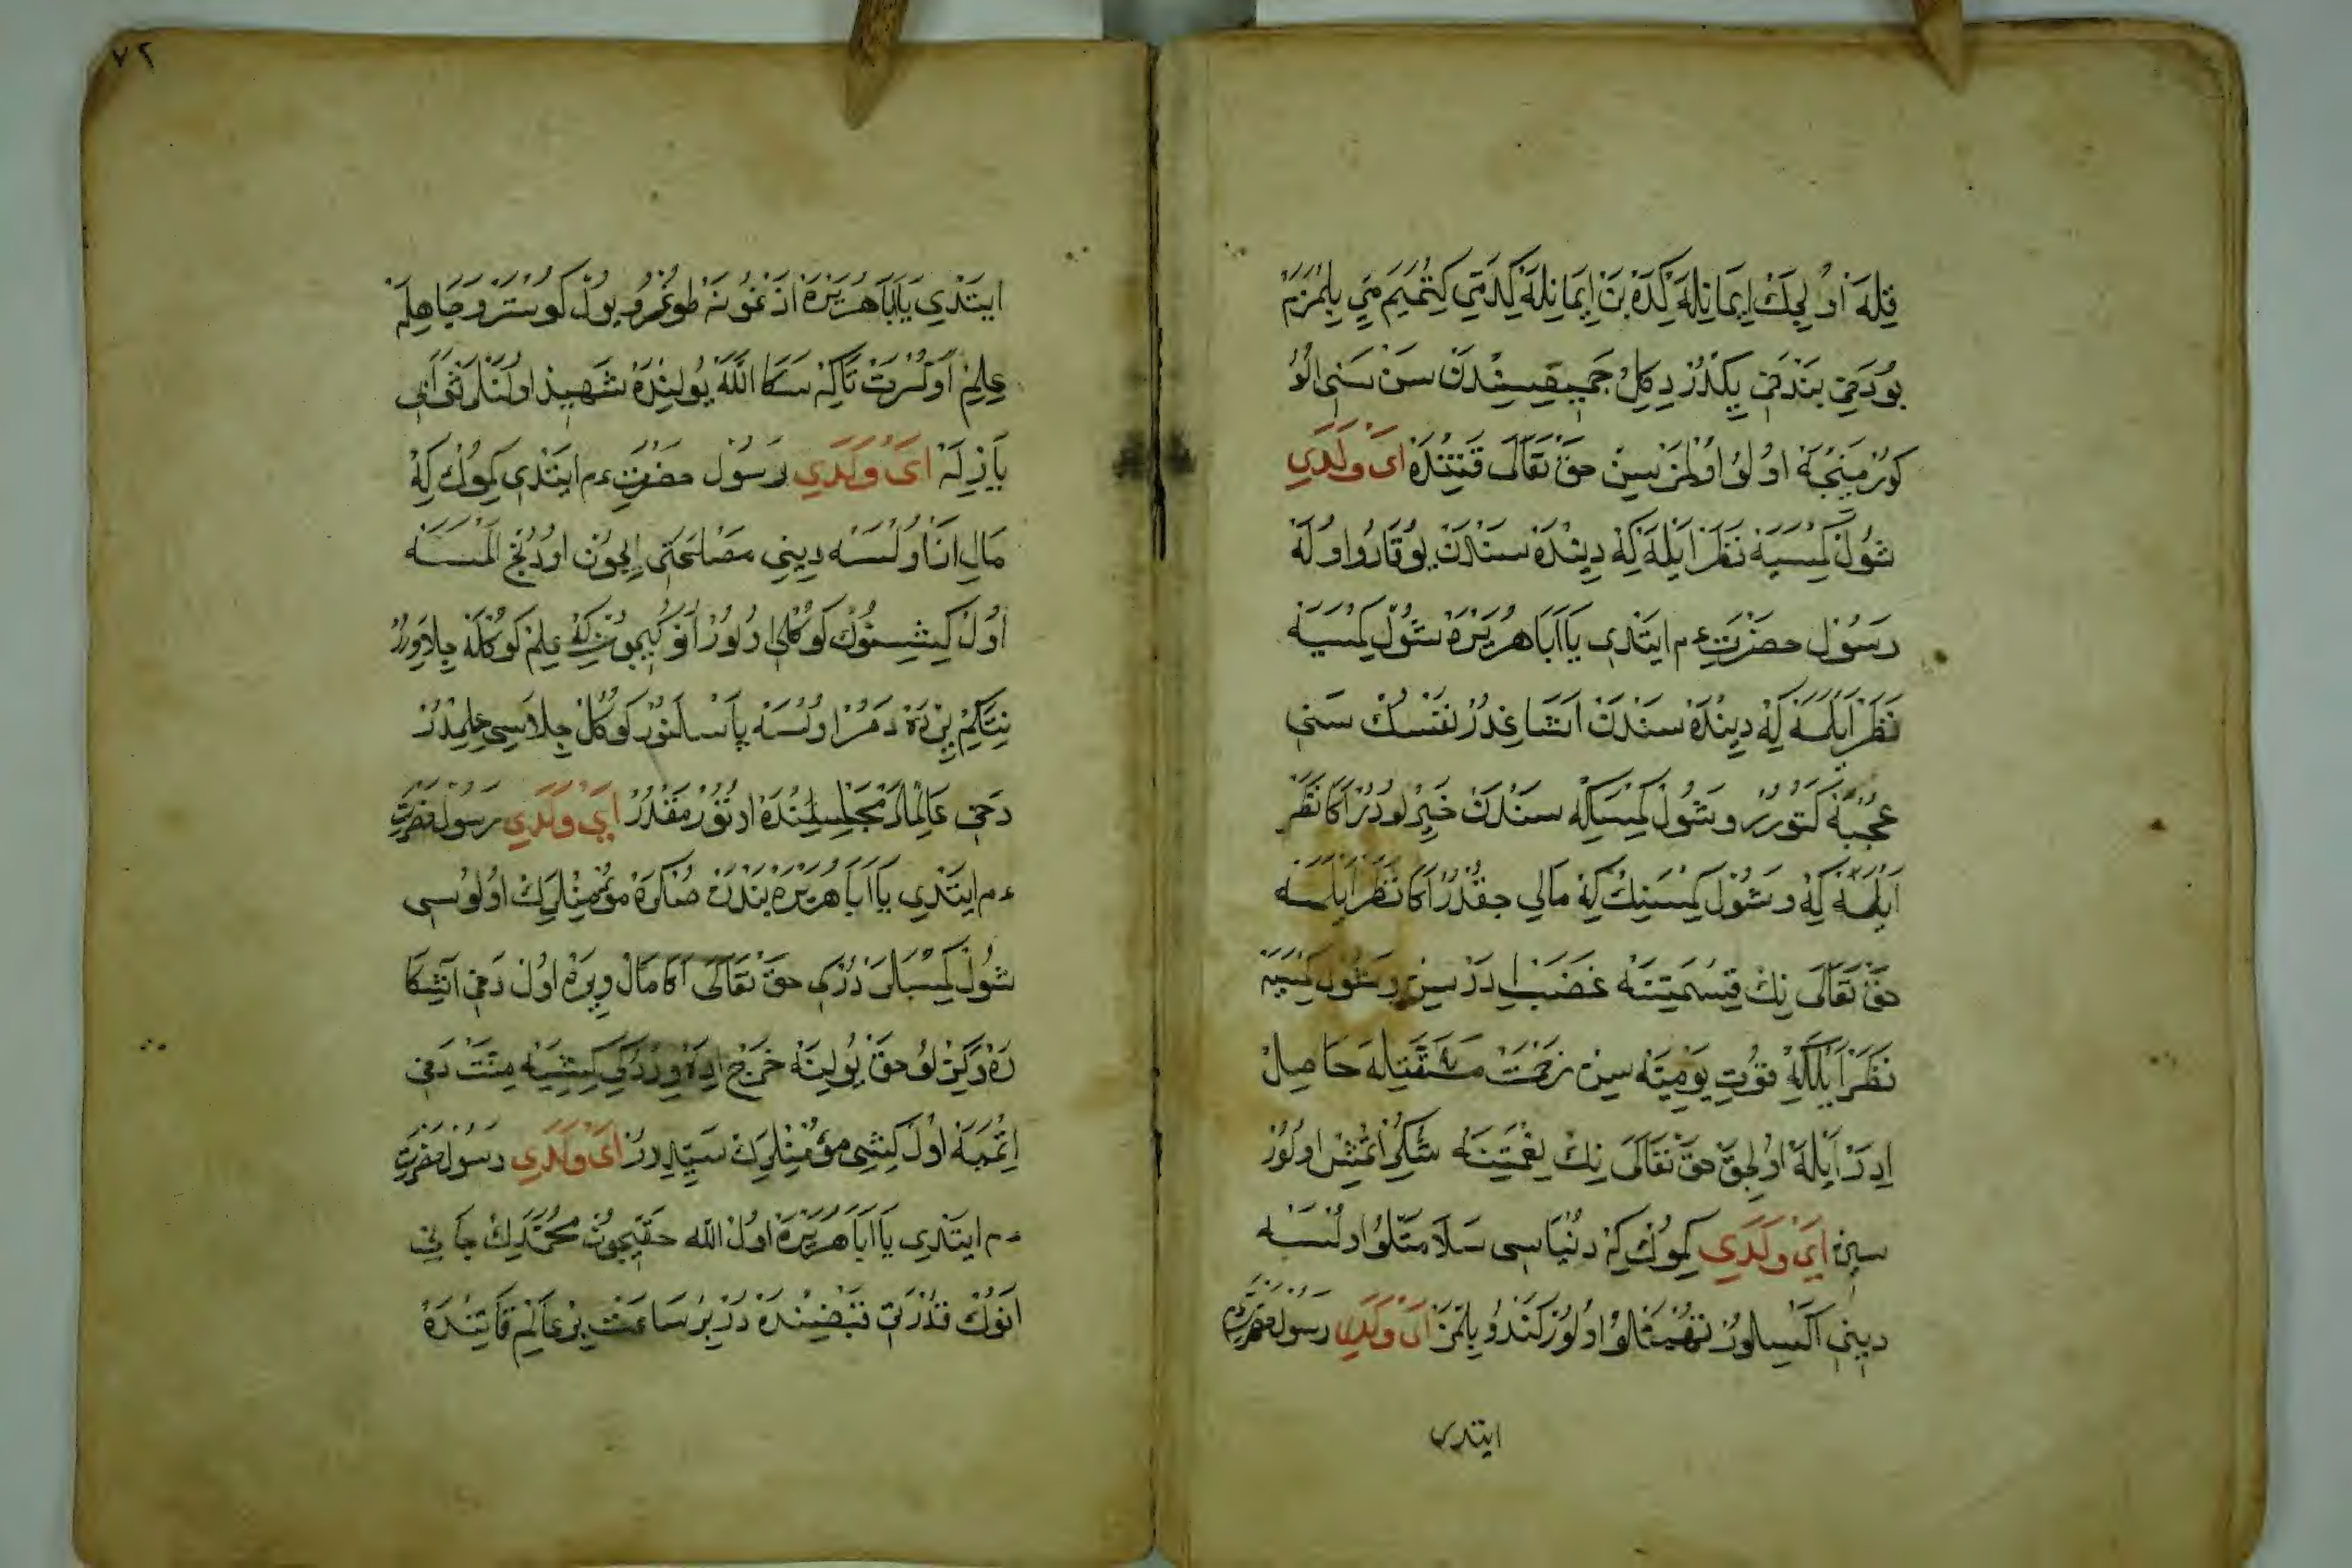 قِلَه اُولِيجَكْ اِيمَانِلَه كِدَه بَنْ اِيمَانِلَه كِدَمِي كِتْمَيَمْ مِي بِلْمَزَمْ
بُو دَخِي بَنْدَنْ يِكْدُرْ دِكِلْ جَمِيعِيسِنْدَنْ سَنْ سَنِي اُلُو
كُورْمَيِنْجَه اُولُو اُولْمَزْسِينْ حَقْ تَعَالَى قَتِنْدَه اَىْ وَلَدِي
شُولْ كِمْسَيَه نَظَرْ اَيْلَه كِه دِينْدَه سَنْدَنْ يُوقَارُو اُولَه
رَسُولْ حَضْرَتِ ءم ايتَدِى يَا اَبَا هُرَيْرَه شُولْ كِمْسَيَه
نَظَرْ اَيْلَمَه كِه دِينْدَه سَنْدَنْ اَشَاغِدُرْ نَفْسُكْ سَنِي
عُجْبَه كَتُورُرْ وَ شُولْ كِمْسَيَه كِه سَنْدَنْ خَيِرْلُودُرْ اَكَا نَظَرْ
اَيْلَه كِه وَ شُولْ كِمْسَنِكْ كِه مَالِي چِقْدُرْ اَكَا نَظَرْ اَيْلَمَه
حَقْ تَعَالَى نِكْ قِسْمَتِنَه غَضَبْ اِدَرْسِينْ وَ شُولْ كِمْسَيَه
نَظَرْ اَيْلَه كِه قُوتِ يَوْمِيَّه سِينْ زَحْمَتْ مَشَقَّتِلَه حَاصِلْ
اِدَرْ اَيْلَه اُولِجَقْ حَقْ تَعَالَى نِكْ نِعْمَتِنَه شُكِرْ اِتْمِشْ اُولُورْ
سِينْ اَىْ وَلَدِي كِمُوكْ كِه دُنْيَاسِى سَلَامَتْلُو اُولْسَه
دِينِي اَكْسِلُورْ اُولُورْ كَنْدُو بِلْمَزْ اَىْ وَلَدِي رَسُولْ حَضْرَتِ
ايتدى
٧٢
ايتَدِي يَا اَبَا هُرَيْرَه اَزْغُونَه طُوغْرُو يُولْ كُوسْتَرْ وَ جَاهِلَه
عِلِمْ اُوكْرَتْ تَاكِه سَكَا اللّٰه يُولِنْدَه شَهِيدْ اُولَنْلَرْ ثَوَابِي
يَازِلَه اَىْ وَلَدِي رَسُولْ حَضْرَتِ ءم ايتَدِي كِمُوكْ كِه
مَالِ اَكَا اُولْسَه دِينِي مَصْلَحَتِي اِيچُونْ اُودُنْجْ اَلْمَسَه
اُولْ كِيشِنُوكْ كُوكْلِي اُولُورْ اَنُو كِيچُونْ كِه عِلِمْ كُوكْلَه جِلَا وِرُرْ
نِتَكِمْ بِرْ پَارَه دَمُرْ اُولْسَه پَاسْلَنُورْ كُوكُلْ جِلَاسِي عِلِمْدُرْ
دَخِي عَالِمْلَرْ مَجْلِسْلَرِنْدَه اُوتُورْمَقْدُرْ اَىْ وَلَدِي رَسُولْ حَضْرَتِ
ءم ايتَدِي يَا اَبَا هُرَيْرَه بَنْدَنْ صُكْرَه مُؤْمِنْلَرِكْ اُولُوسِى
شُولْ كِمْسَلَرْدُرْ كِى حَقْ تَعَالَى اَكَا مَالْ وِيرَه اُولْ دَخِي اَشِكَا
رَه وَ كِزْلُو حَقْ يُولِنَه خَرْجْ اِدَه وِرْدُكِى كِشِيَه مِنَّتْ دَخِي
اِتْمَيَه اُولْ كِشِى مُؤْمِنْلَرِكْ سَيِّدِدُرْ اَىْ وَلَدِي رَسُولْ حَضْرَتِ
ءم ايتَدِى يَا اَبَا هُرَيْرَه اُولْ اللّٰه حَقِّيچُونْ مُحَمَّدِكْ جَانِي
اَنُوكْ قُدْرَتِي قَبْضِنْدَه دُرْ بِرْ سَاعَتْ بِرْ عَالِمْ قَاتِنْدَه